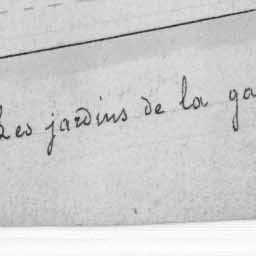 Les jardins de la ga